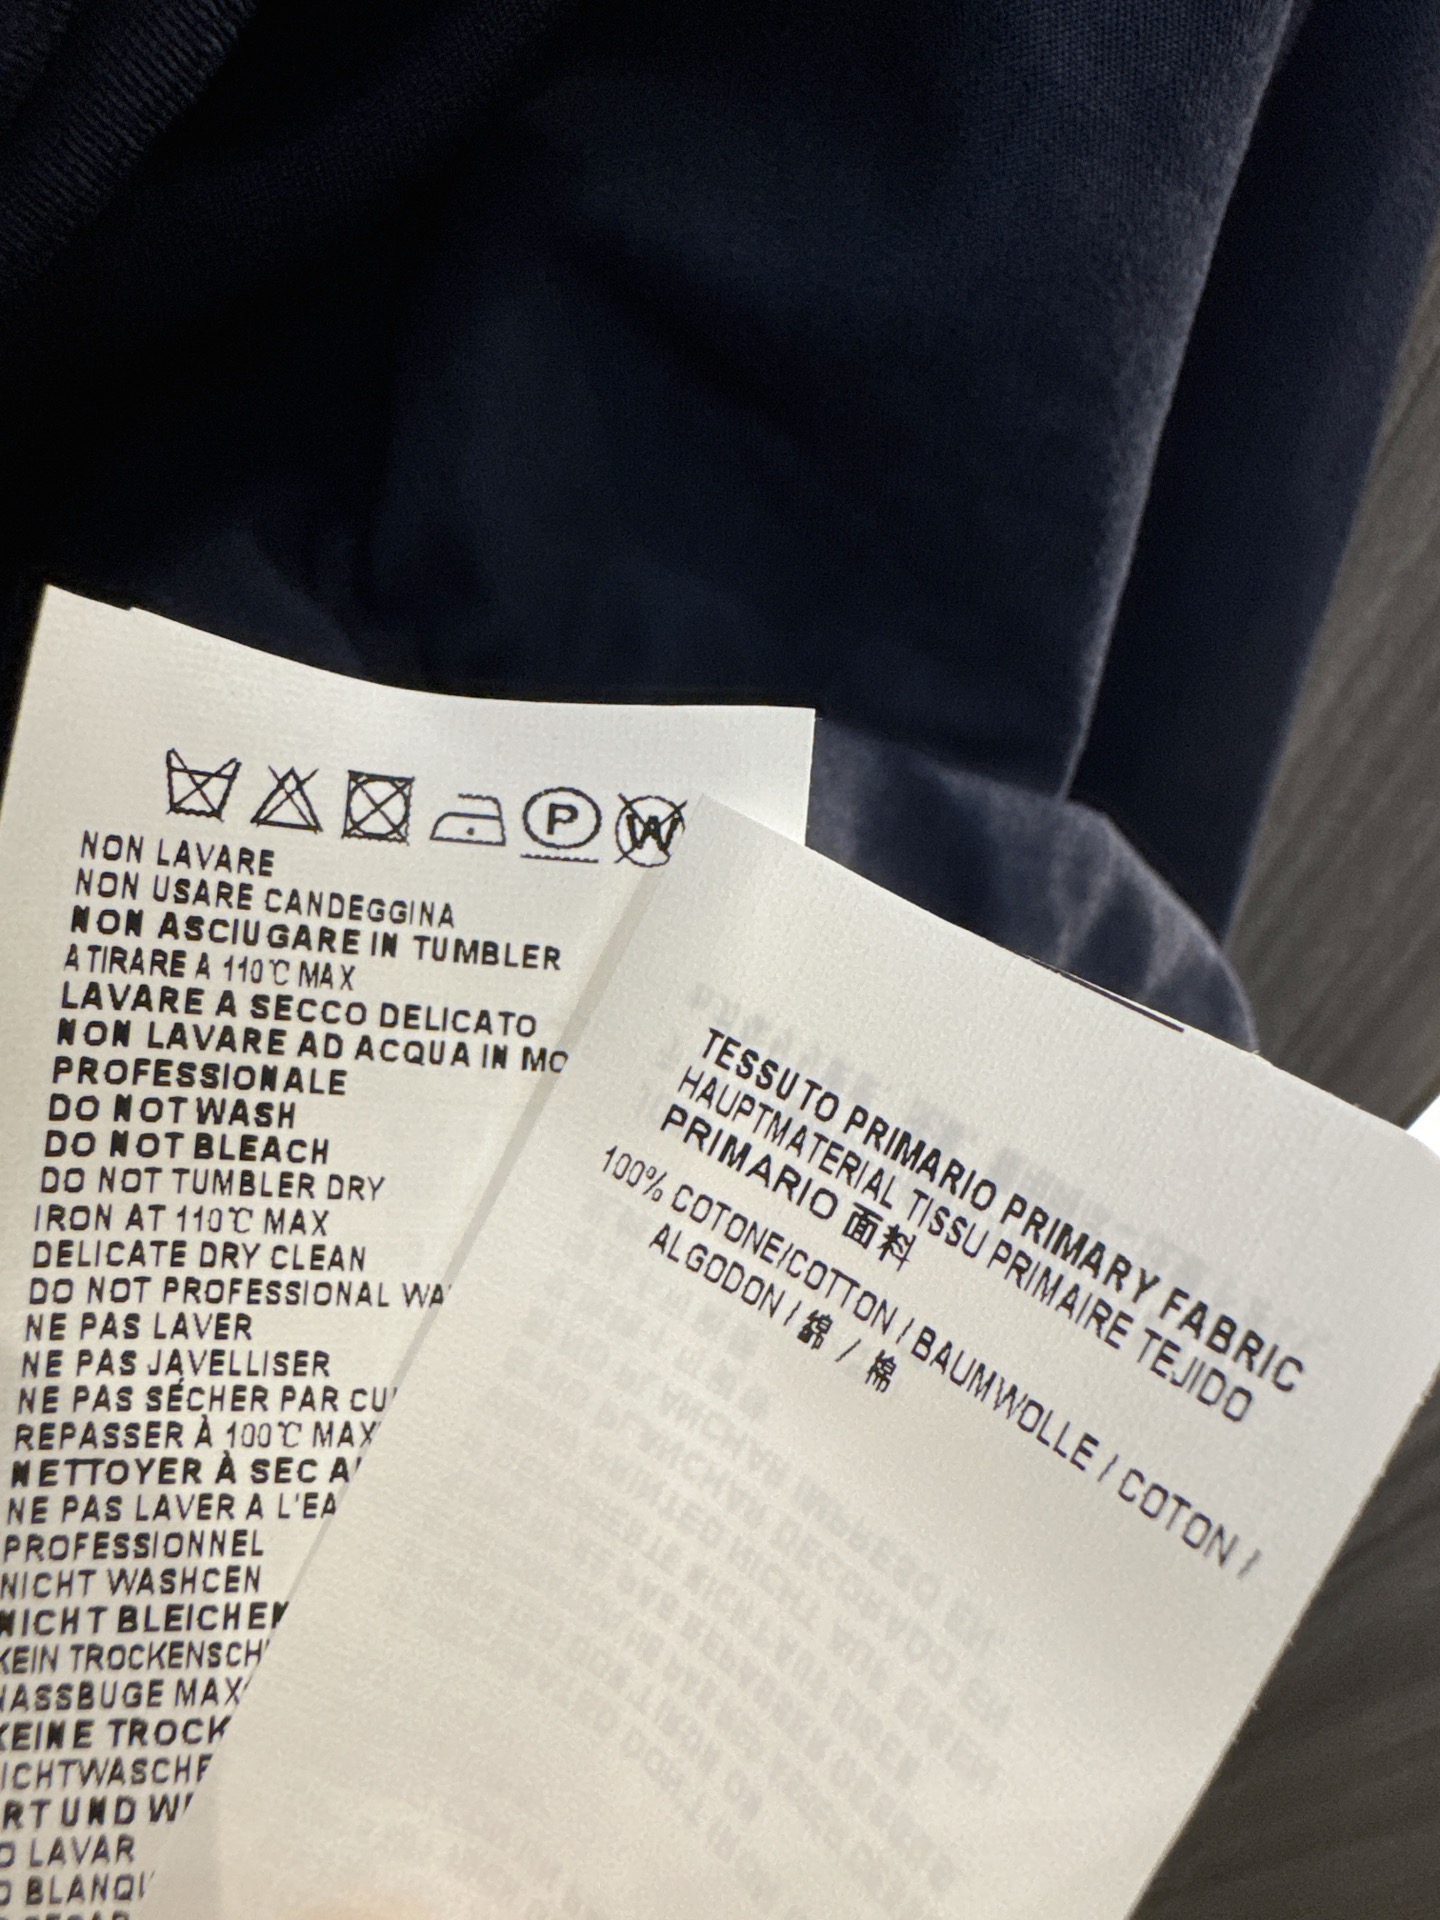 P
W
NON LAVARE
NON USARE CANDEGGINA
NON ASCIUGARE IN TUMBLER
A TIRARE A 110℃ MAX
LAVARE A SECCO DELICATO
NON LAVARE AD ACQUA IN MO
PROFESSIONALE
DO NOT WASH
DO NOT BLEACH
DO NOT TUMBLER DRY
IRON AT 110℃ MAX
DELICATE DRY CLEAN
DO NOT PROFESSIONAL WA
NE PAS LAVER
NE PAS JAVELLISER
NE PAS SÉCHER PAR CU
REPASSER À 100℃ MAX
NETTOYER À SEC A
NE PAS LAVER A L'EA
PROFESSIONNEL
NICHT WASHCEN
NICHT BLEICHEN
KEIN TROCKENSCH
ASSBUGE MAX
KEINE TROCK
ICHTWASCHE
RT UND W
LAVAR
BLANQ
TESSUTO PRIMARIO PRIMARY FABRIC
HAUPTMATERIAL TISSU PRIMAIRE TEJIDO
PRIMARIO 面料
100% COTONE/COTTON / BAUMWOLLE / COTON /
ALGODON / 綿 / 棉